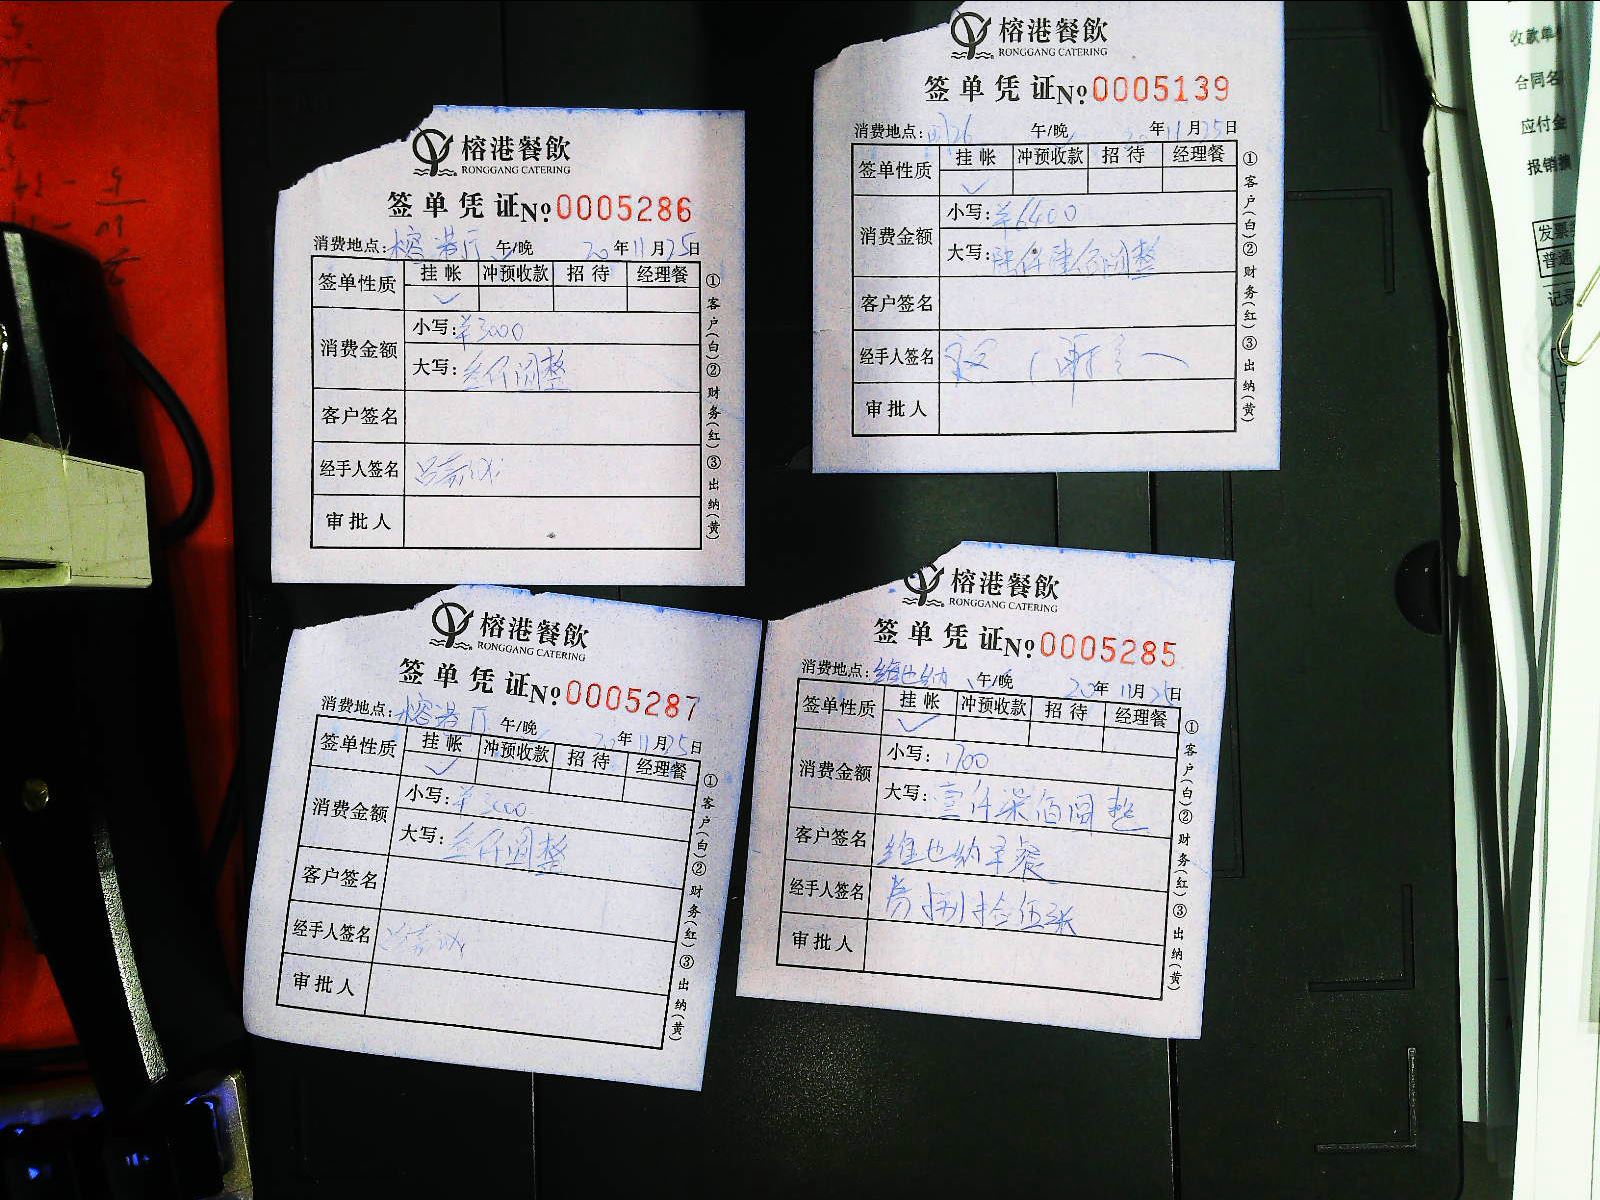 榕港餐飲
RONGGANG CATERING
签单凭证№0005286
消费地点:榕港厅 午/晚 20年11月25日
签单性质 挂帐 冲预收款 招待 经理餐
消费金额
小写:¥3000
大写:叁仟圆整
客户签名
经手人签名
审批人
①客户(白)②财务(红)③出纳(黄)
榕港餐飲
RONGGANG CATERING
签单凭证№0005139
消费地点: 午/晚 20年11月25日
签单性质 挂帐 冲预收款 招待 经理餐
消费金额
小写:¥6400
大写:陆仟肆佰圆整
客户签名
经手人签名
审批人
①客户(白)②财务(红)③出纳(黄)
榕港餐飲
RONGGANG CATERING
签单凭证№0005287
消费地点:榕港厅 午/晚 20年11月25日
签单性质 挂帐 冲预收款 招待 经理餐
消费金额
小写:¥3000
大写:叁仟圆整
客户签名
经手人签名
审批人
①客户(白)②财务(红)③出纳(黄)
榕港餐飲
RONGGANG CATERING
签单凭证№0005285
消费地点:维也纳 午/晚 20年11月25日
签单性质 挂帐 冲预收款 招待 经理餐
消费金额
小写:1700
大写:壹仟柒佰圆整
客户签名 维也纳早餐
经手人签名 券捌拾伍张
审批人
①客户(白)②财务(红)③出纳(黄)
收款单
合同名
应付金
报销摘
发票
普通
记录